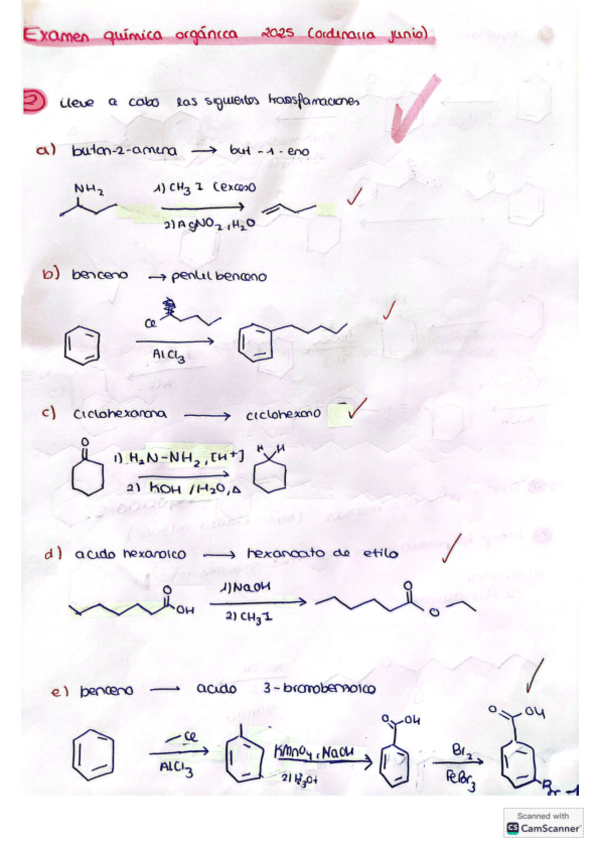 Examen química orgánica 2025 (ordinaria junio)
2) Lleve a cabo las siguientes transformaciones
a) butan-2-amina → but-1-eno
NH2
1) CH3I (exceso)
2) AgNO2, H2O
b) benceno → pentilbenceno
Cl
AlCl3
c) Ciclohexanona → ciclohexano
O
1) H2N-NH2, [H+]
2) KOH / H2O, Δ
H H
d) acido hexanoico → hexanoato de etilo
O
OH
1) NaOH
2) CH3I
O
O
e) benceno → acido 3-bromobenzoico
Cl
AlCl3
KMnO4, NaOH
2) H3O+
O OH
Br2
FeBr3
O OH
Br
Scanned with
CS CamScanner